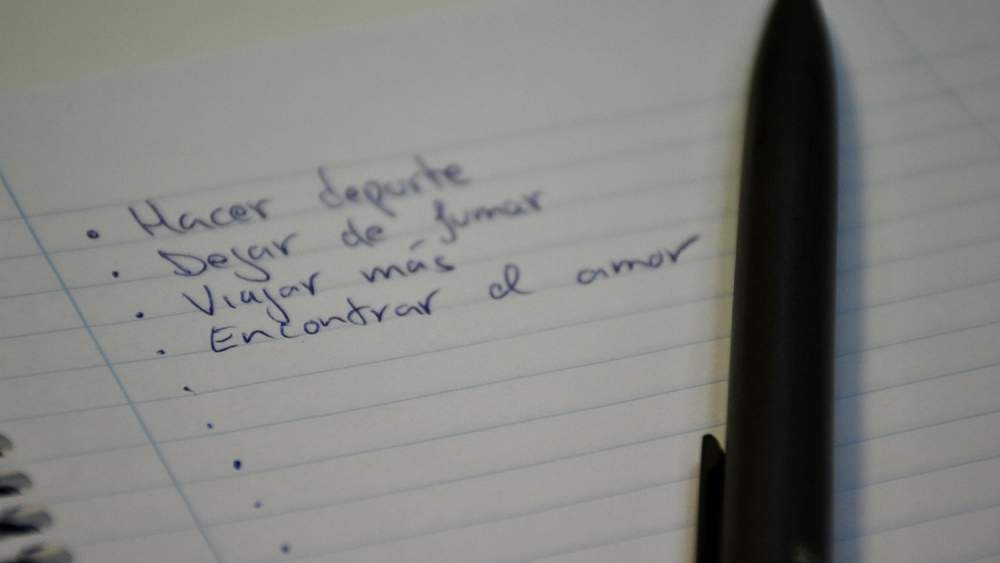 · Hacer deporte
· Dejar de fumar
· Viajar más
· Encontrar el amor
·
·
·
·
·